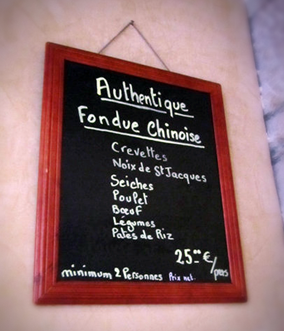 Authentique
Fondue Chinoise
Crevettes
Noix de St Jacques
Seiches
Poulet
Bœuf
Légumes
Pates de Riz
25.00 €/pers
minimum 2 Personnes Prix net.